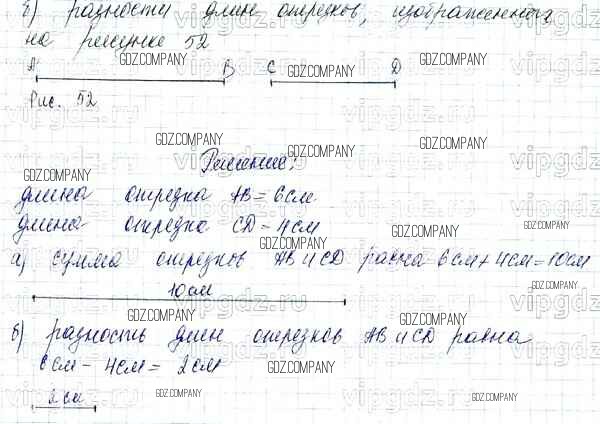 б) разности длин отрезков, изображенных
на рисунке 52
A B C D
Рис. 52
Решение:
длина отрезка AB = 6 см
длина отрезка CD = 4 см
а) сумма отрезков AB и CD равна 6 см + 4 см = 10 см
10 см
б) разность длин отрезков AB и CD равна
6 см - 4 см = 2 см
2 см
GDZ.COMPANY
vipgdz.ru